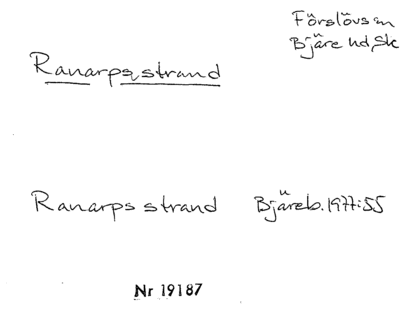 Förslövs sn
Bjäre hd, Sk
Ranarps strand
Ranarps strand Bjäreb. 1977:55
Nr 19187